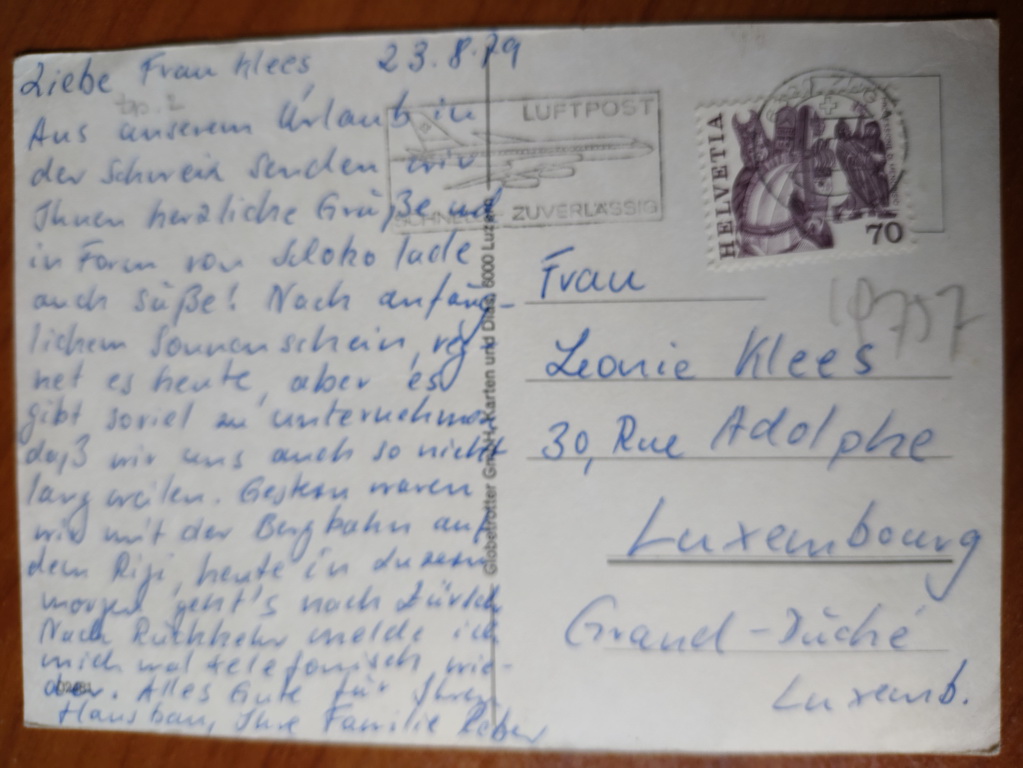 Liebe Frau Klees, 23.8.79
Aus unserem Urlaub in
der Schweiz senden wir
Ihnen herzliche Grüße und
in Form von Schokolade
auch süße! Nach anfäng-
lichem Sonnenschein, reg
net es heute, aber es
gibt soviel zu unternehmen
daß wir uns auch so nicht
langweilen. Gestern waren
wir mit der Bergbahn auf
dem Rigi, heute in Luzern
morgen geht's nach Zürich
Nach Rückkehr melde ich
mich mal telefonisch wie-
der. Alles Gute für Ihren
Hausbau, Ihre Familie
LUFTPOST
SCHNELL - ZUVERLÄSSIG
HELVETIA
70
Globetrotter GmbH, Karten und Dias, 6000 Luzern
Frau
Leonie Klees
30, Rue Adolphe
Luxembourg
Grand-Düché
Luxemb.